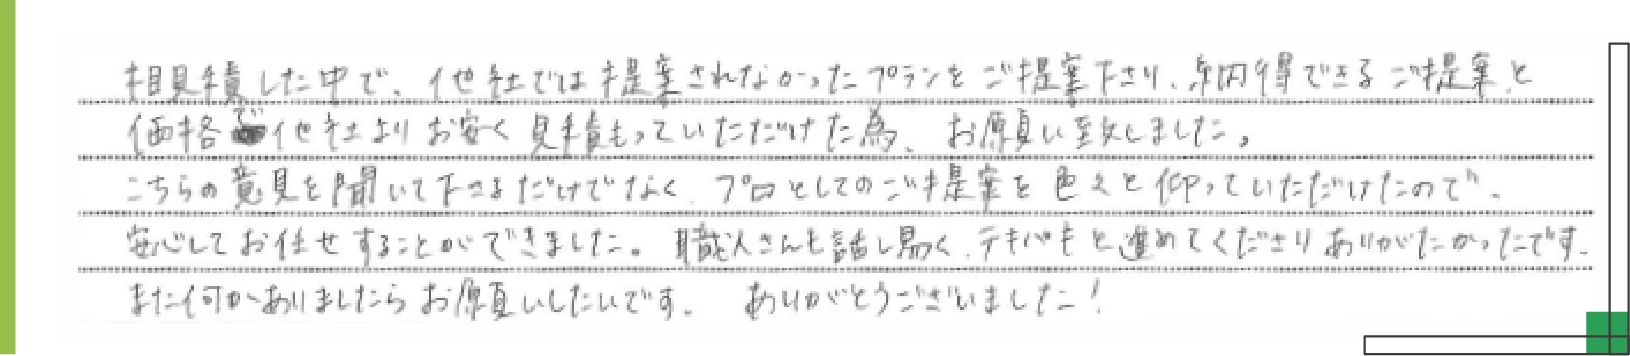 相見積した中で、他社では提案されなかったプランをご提案下さり、納得できるご提案と
価格で他社よりお安く見積もっていただけた為、お願い致しました。
こちらの意見を聞いて下さるだけでなく、プロとしてのご提案を色々と仰っていただけたので、
安心してお任せすることができました。職人さんも話し易く、テキパキと進めてくださりありがたかったです。
また何かありましたらお願いしたいです。ありがとうございました!